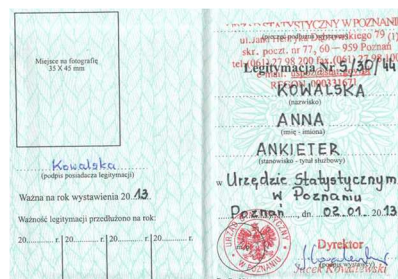 Miejsce na fotografię
35 X 45 mm
Kowalska
(podpis posiadacza legitymacji)
Ważna na rok wystawienia 2013
Ważność legitymacji przedłużono na rok:
20........... r 20........... r. 20........... r. 20........... r.
URZĄD STATYSTYCZNY W POZNANIU
ul. Jana Henryka Dąbrowskiego 79
skr. poczt. nr 77, 60 – 959 Poznań
tel. (061) 27 98 200 fax. (061) 27 98 100
REGON 000331671
Legitymacja Nr 5/30/44
KOWALSKA
(nazwisko)
ANNA
(imię - imiona)
ANKIETER
(stanowisko - tytuł służbowy)
w Urzędzie Statystycznym
w Poznaniu
Poznań, dn. 02.01. 2013
Dyrektor
Jacek Kowalewski